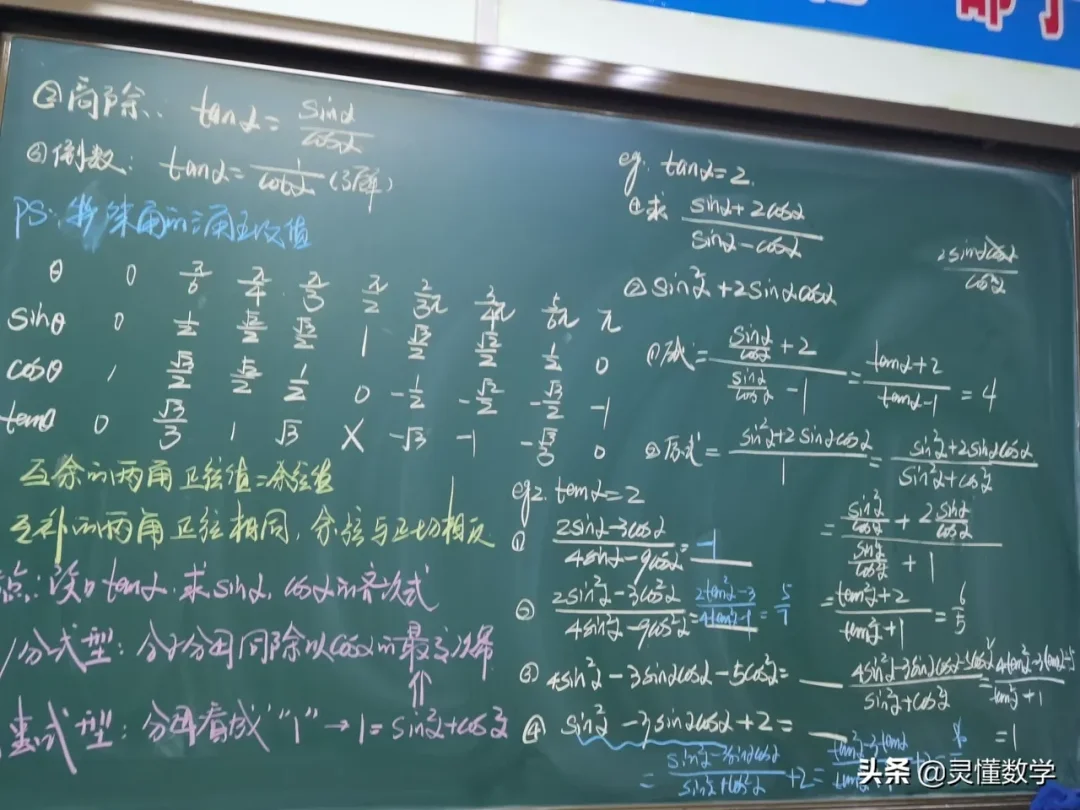 ③商除: tanα = sinα/cosα
④倒数: tanα = 1/cotα (了解)
PS: 特殊角的三角函数值
θ 0 π/6 π/4 π/3 π/2 2/3π 3/4π 5/6π π
sinθ 0 1/2 √2/2 √3/2 1 √3/2 √2/2 1/2 0
cosθ 1 √3/2 √2/2 1/2 0 -1/2 -√2/2 -√3/2 -1
tanθ 0 √3/3 1 √3 X -√3 -1 -√3/3 0
互余的两角正弦值=余弦值
互补的两角正弦相同,余弦与正切相反
点:设tanα.求sinα,cosα的齐次式
分式型:分子分母同除以cosα的最高次幂
整式型:分母看成"1"→1=sin²α+cos²α
eg. tanα=2.
①求 (sinα+2cosα)/(sinα-cosα)
②sin²α+2sinαcosα
2sinαcosα/cos²α
①原式=(sinα/cosα+2)/(sinα/cosα-1)=(tanα+2)/(tanα-1)=4
②原式=(sin²α+2sinαcosα)/1=(sin²α+2sinαcosα)/(sin²α+cos²α)
=(sin²α/cos²α+2sinα/cosα)/(sin²α/cos²α+1)
=(tan²α+2)/(tan²α+1)=6/5
eg2. tanα=2
① (2sinα-3cosα)/(4sinα-9cosα)=-1
② (2sin²α-3cos²α)/(4sin²α-9cos²α)=(2tan²α-3)/(4tan²α-9)=5/7
③ 4sin²α-3sinαcosα-5cos²α=
(4sin²α-3sinαcosα-5cos²α)/(sin²α+cos²α)=(4tan²α-3tanα-5)/(tan²α+1)
=1
④ sin²α-3sinαcosα+2=
=(sin²α-3sinαcosα)/(sin²α+cos²α)+2=
头条 @灵懂数学